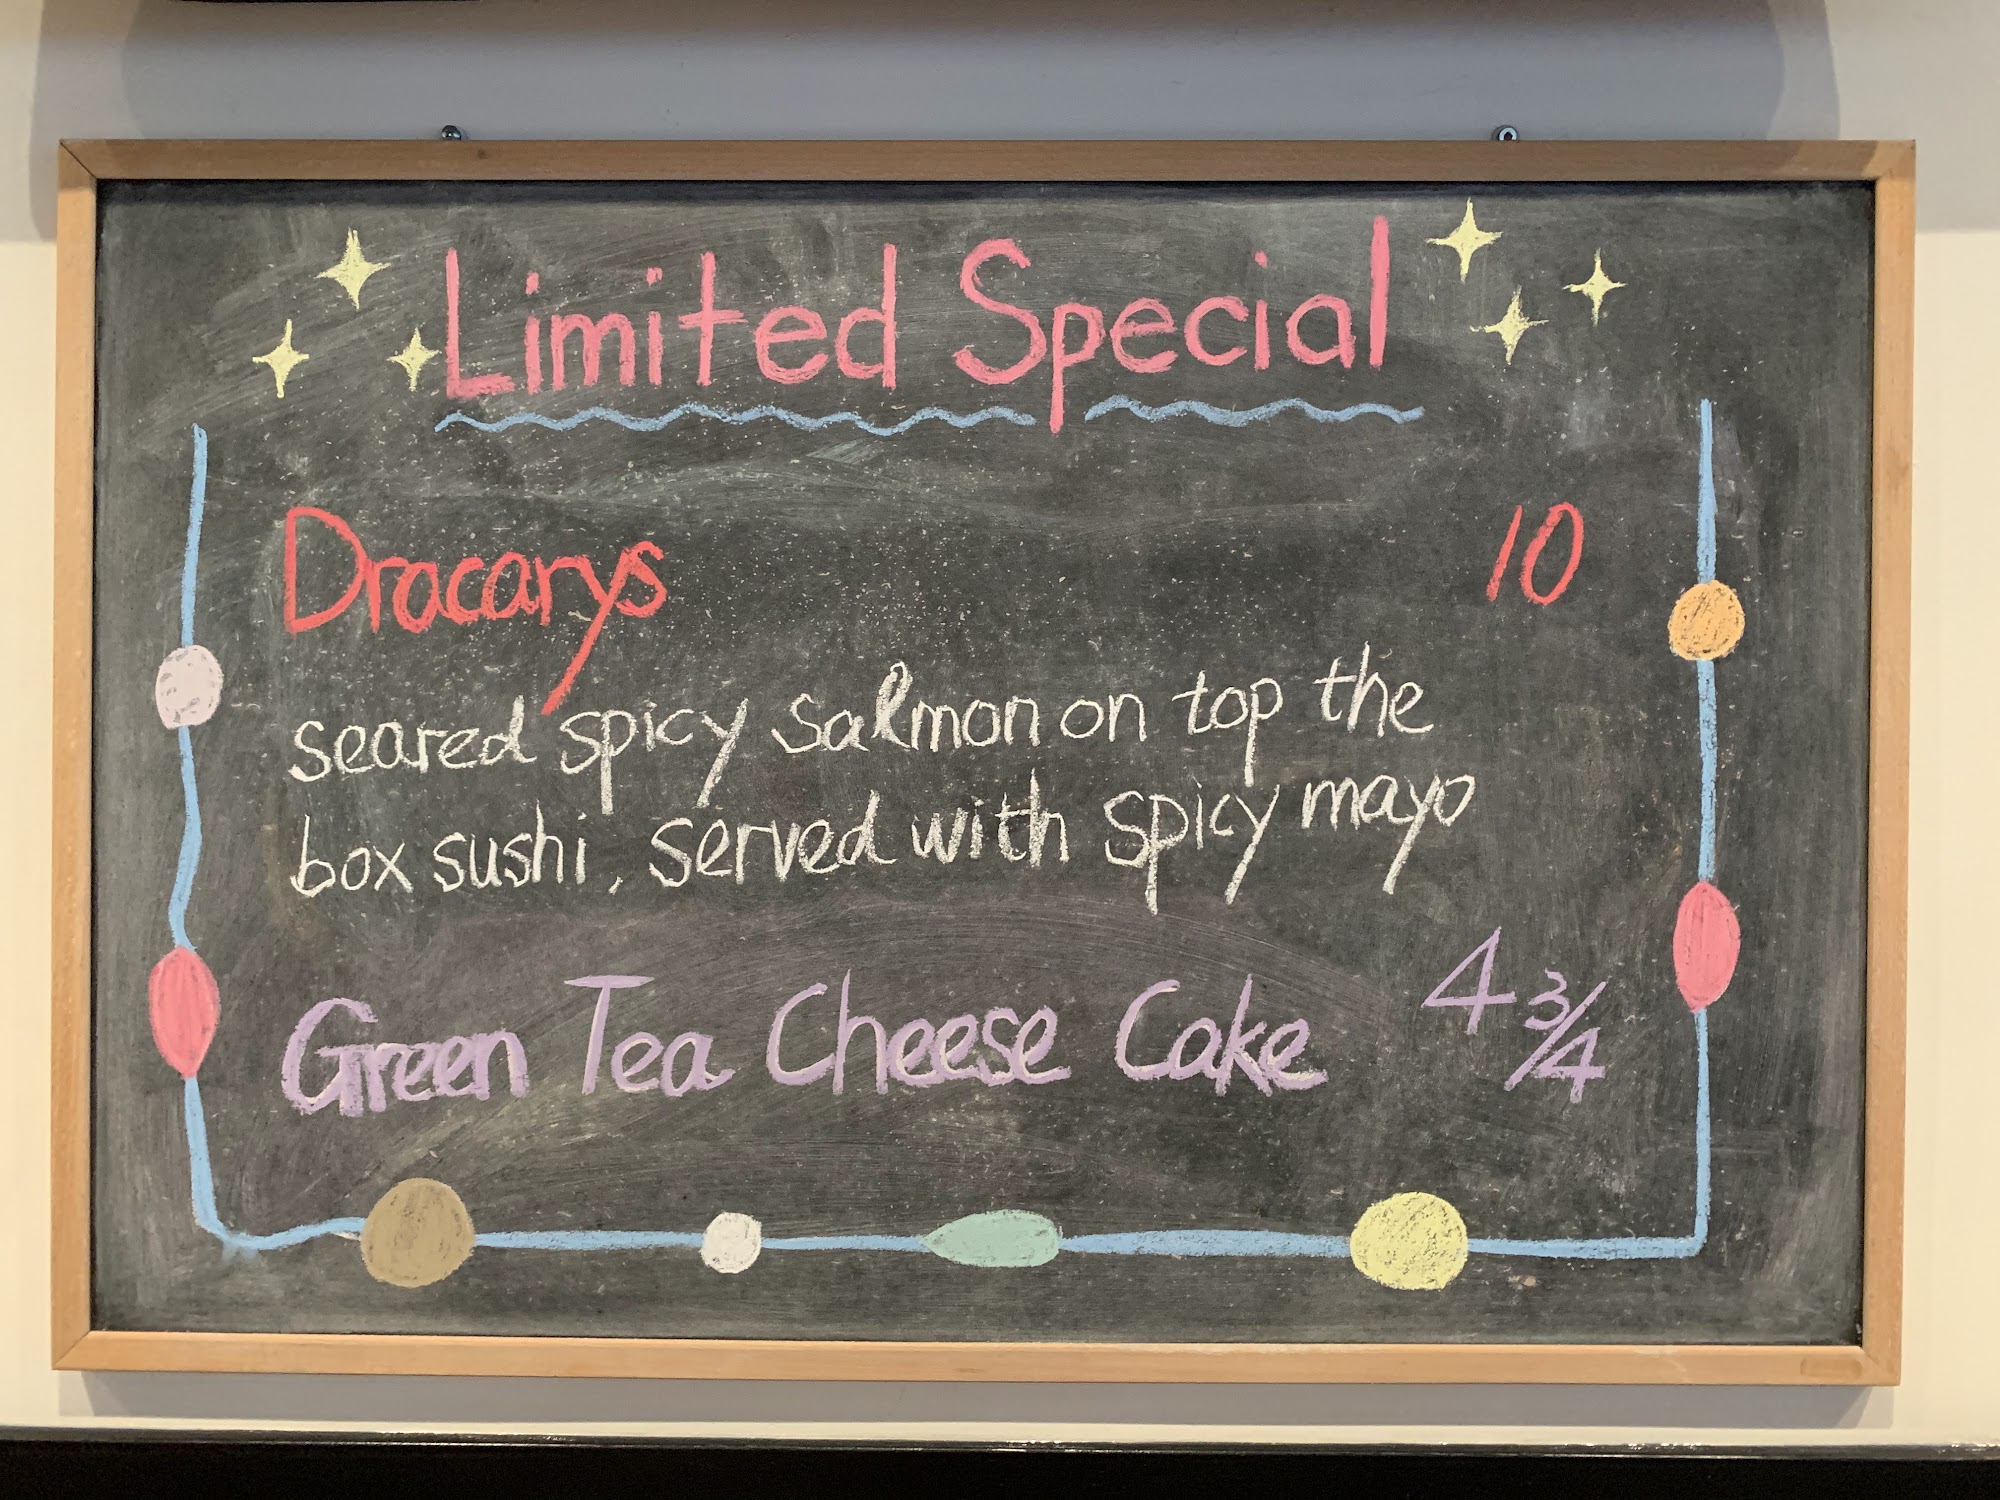 Limited Special
Dracarys 10
seared spicy salmon on top the
box sushi, served with spicy mayo
Green Tea Cheese Cake 4 3/4